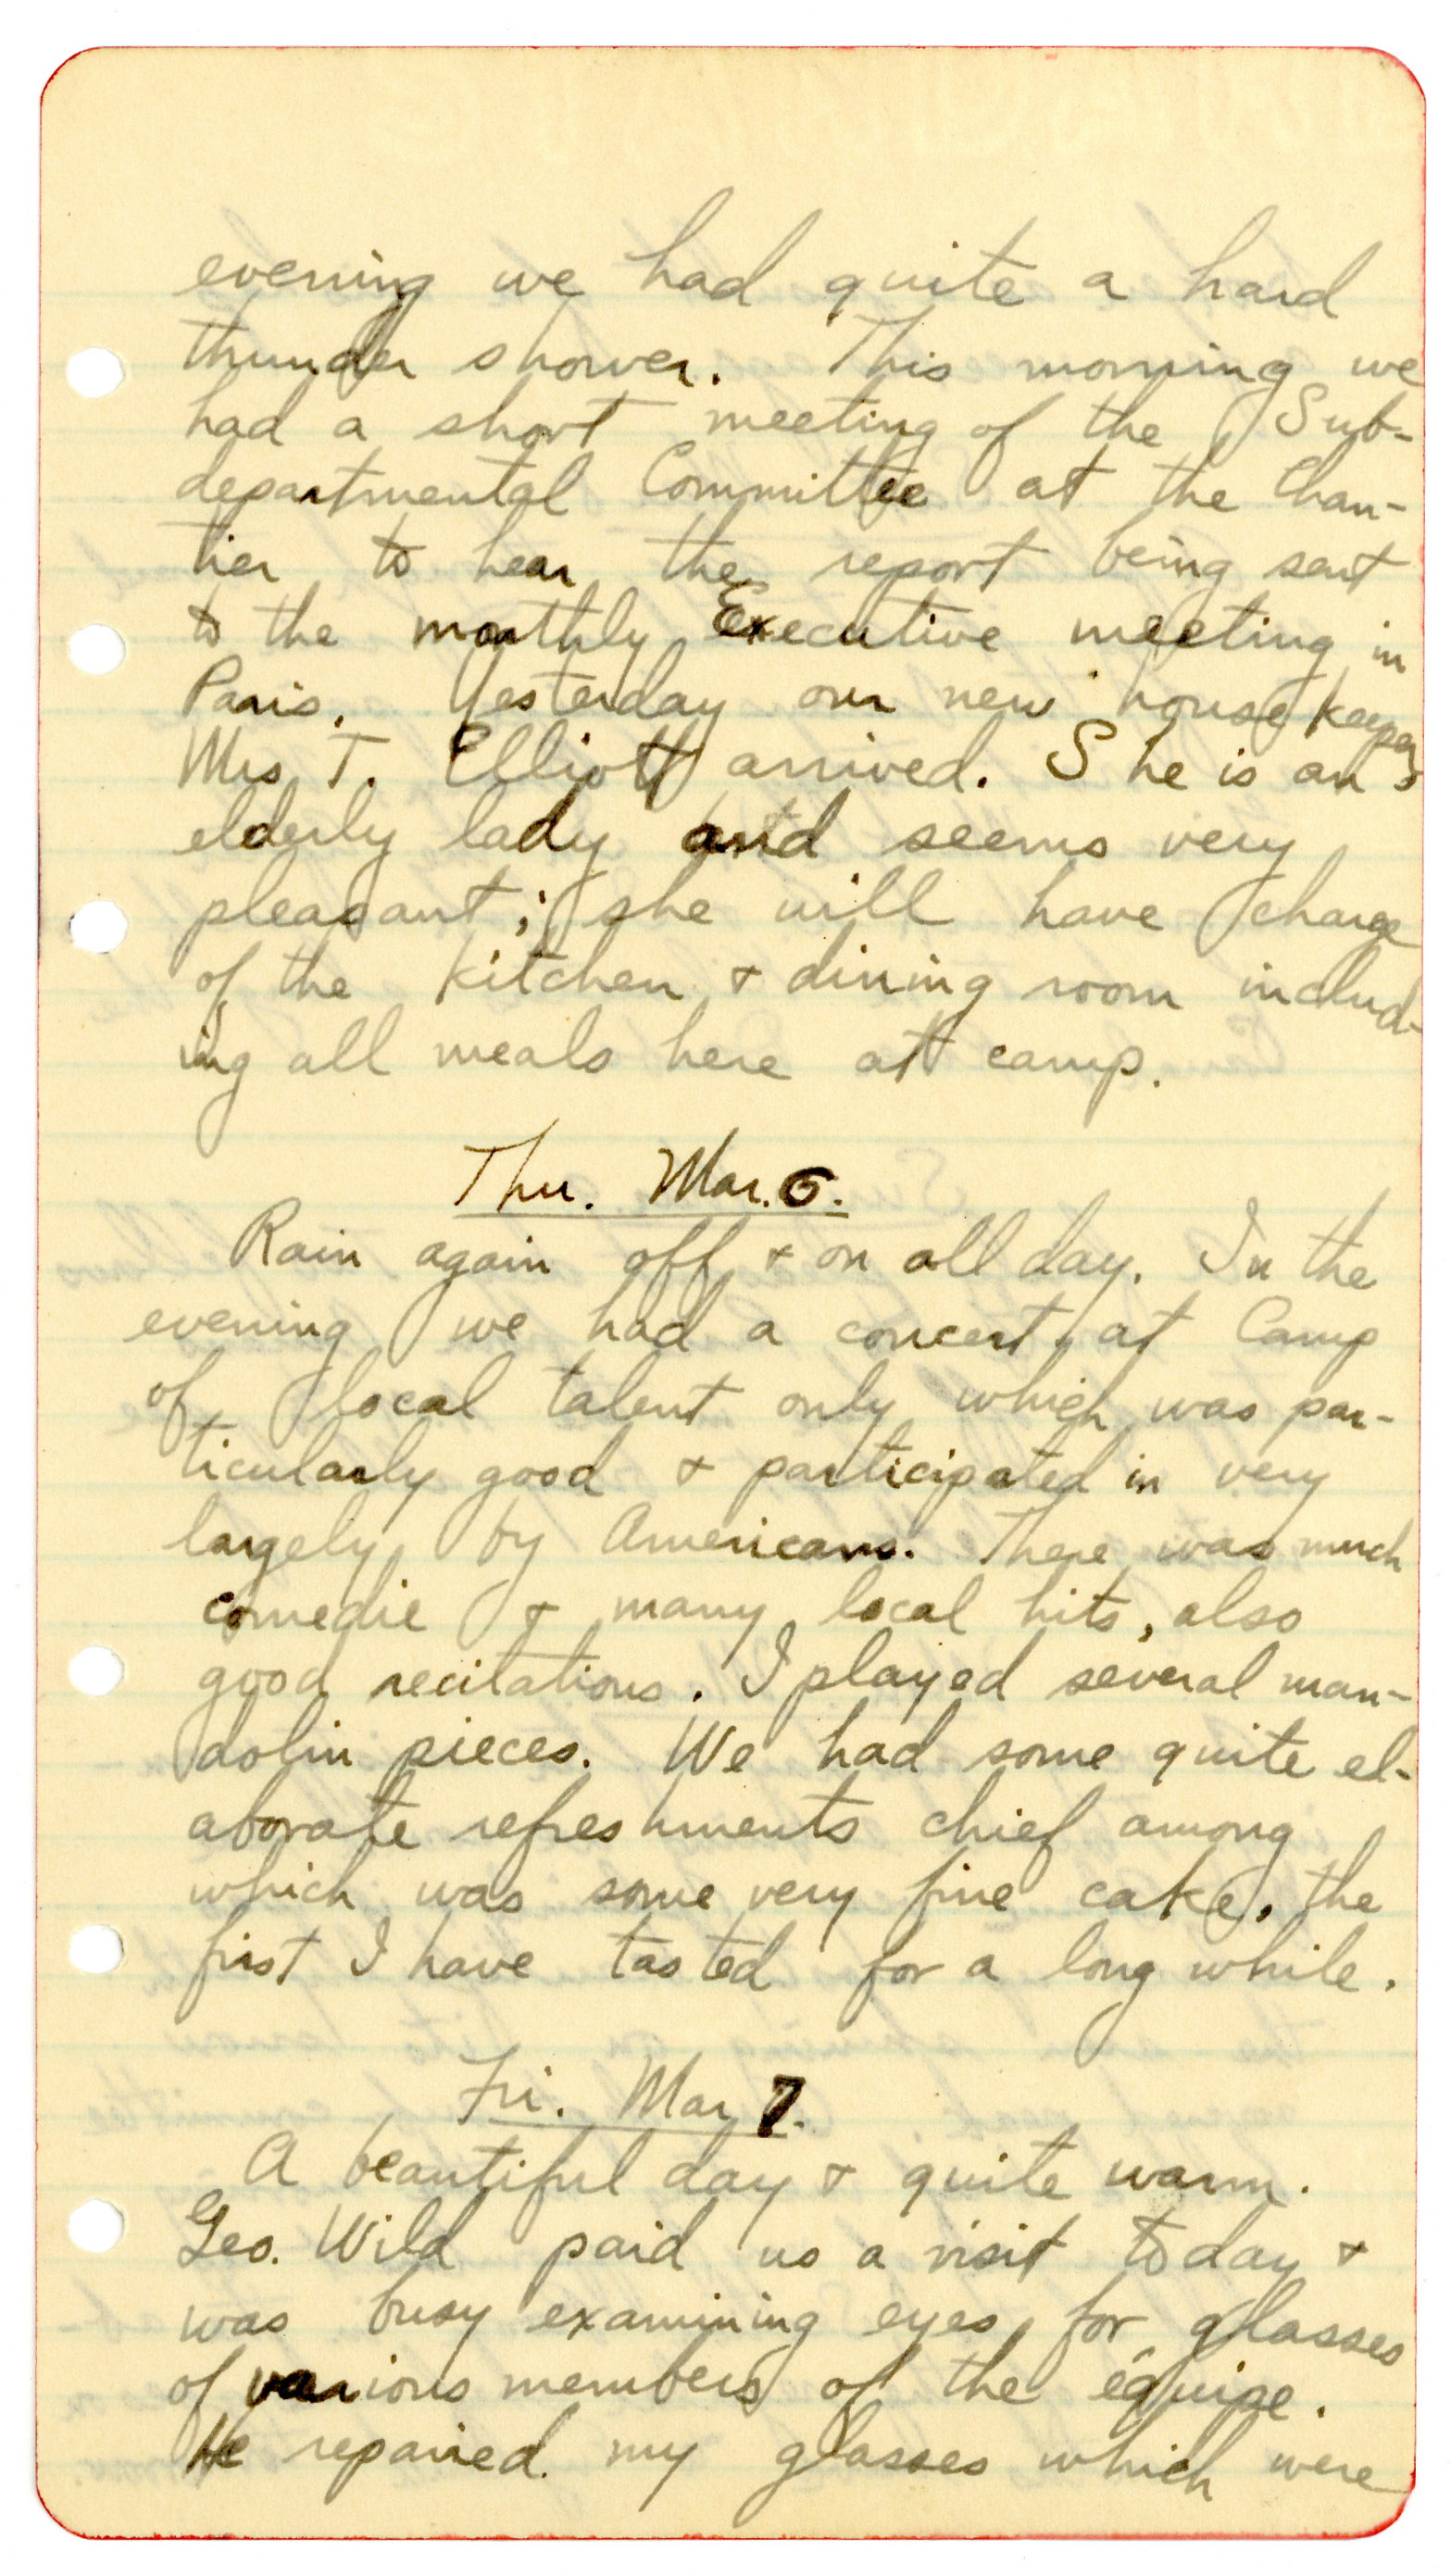 evening we had quite a hard
thunder shower. This morning we
had a short meeting of the Sub-
departmental Committee at the Chan-
tier to hear the report being sent
to the monthly Executive meeting in
Paris. Yesterday our new housekeeper,
Mrs T. Elliott arrived. She is an
elderly lady and seems very
pleasant; she will have charge
of the kitchen + dining room includ-
ing all meals here at camp.
Thu. Mar. 6.
Rain again off + on all day. In the
evening we had a concert at Camp
of local talent only which was par-
ticularly good + participated in very
largely by Americans. There was much
comedie + many local hits, also
good recitations. I played several man-
dolin pieces. We had some quite el-
aborate refreshments chief among
which was some very fine cake, the
first I have tasted for a long while.
Fri. Mar 7.
A beautiful day + quite warm.
Geo. Wild paid us a visit today +
was busy examining eyes for glasses
of various members of the équipe.
He repaired my glasses which were